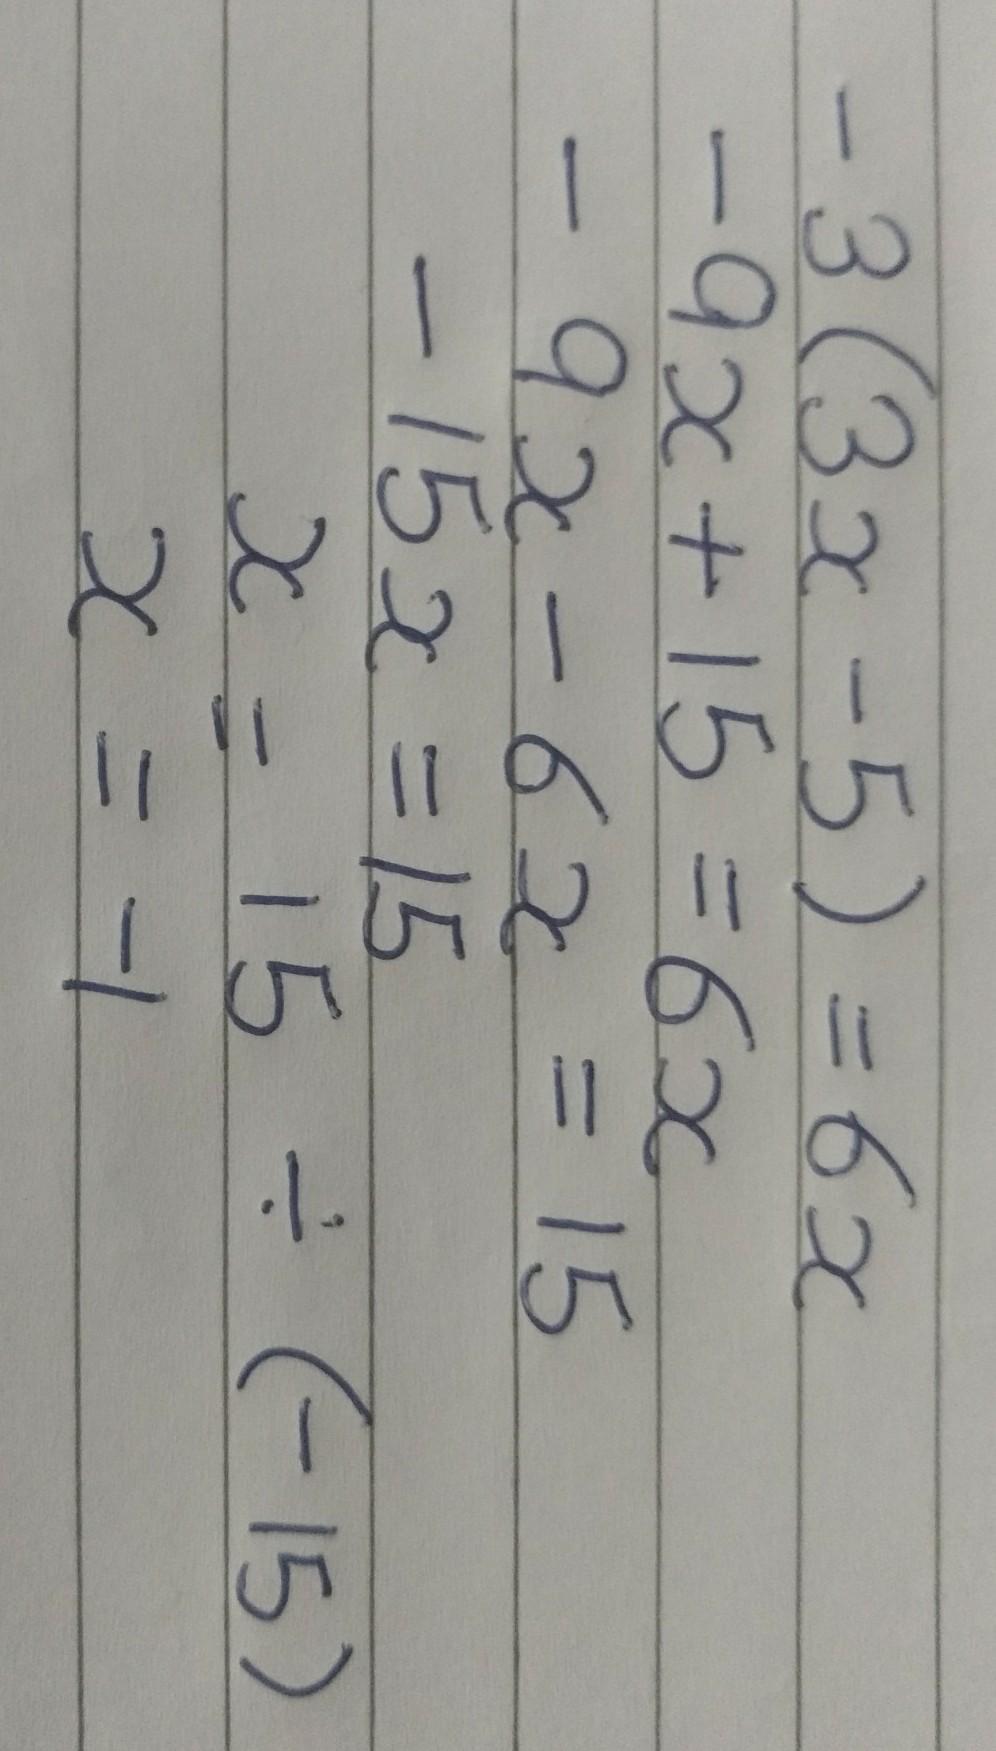 -3(3x-5)=6x
-9x+15=6x
-9x-6x=15
-15x=15
x=15÷(-15)
x=-1